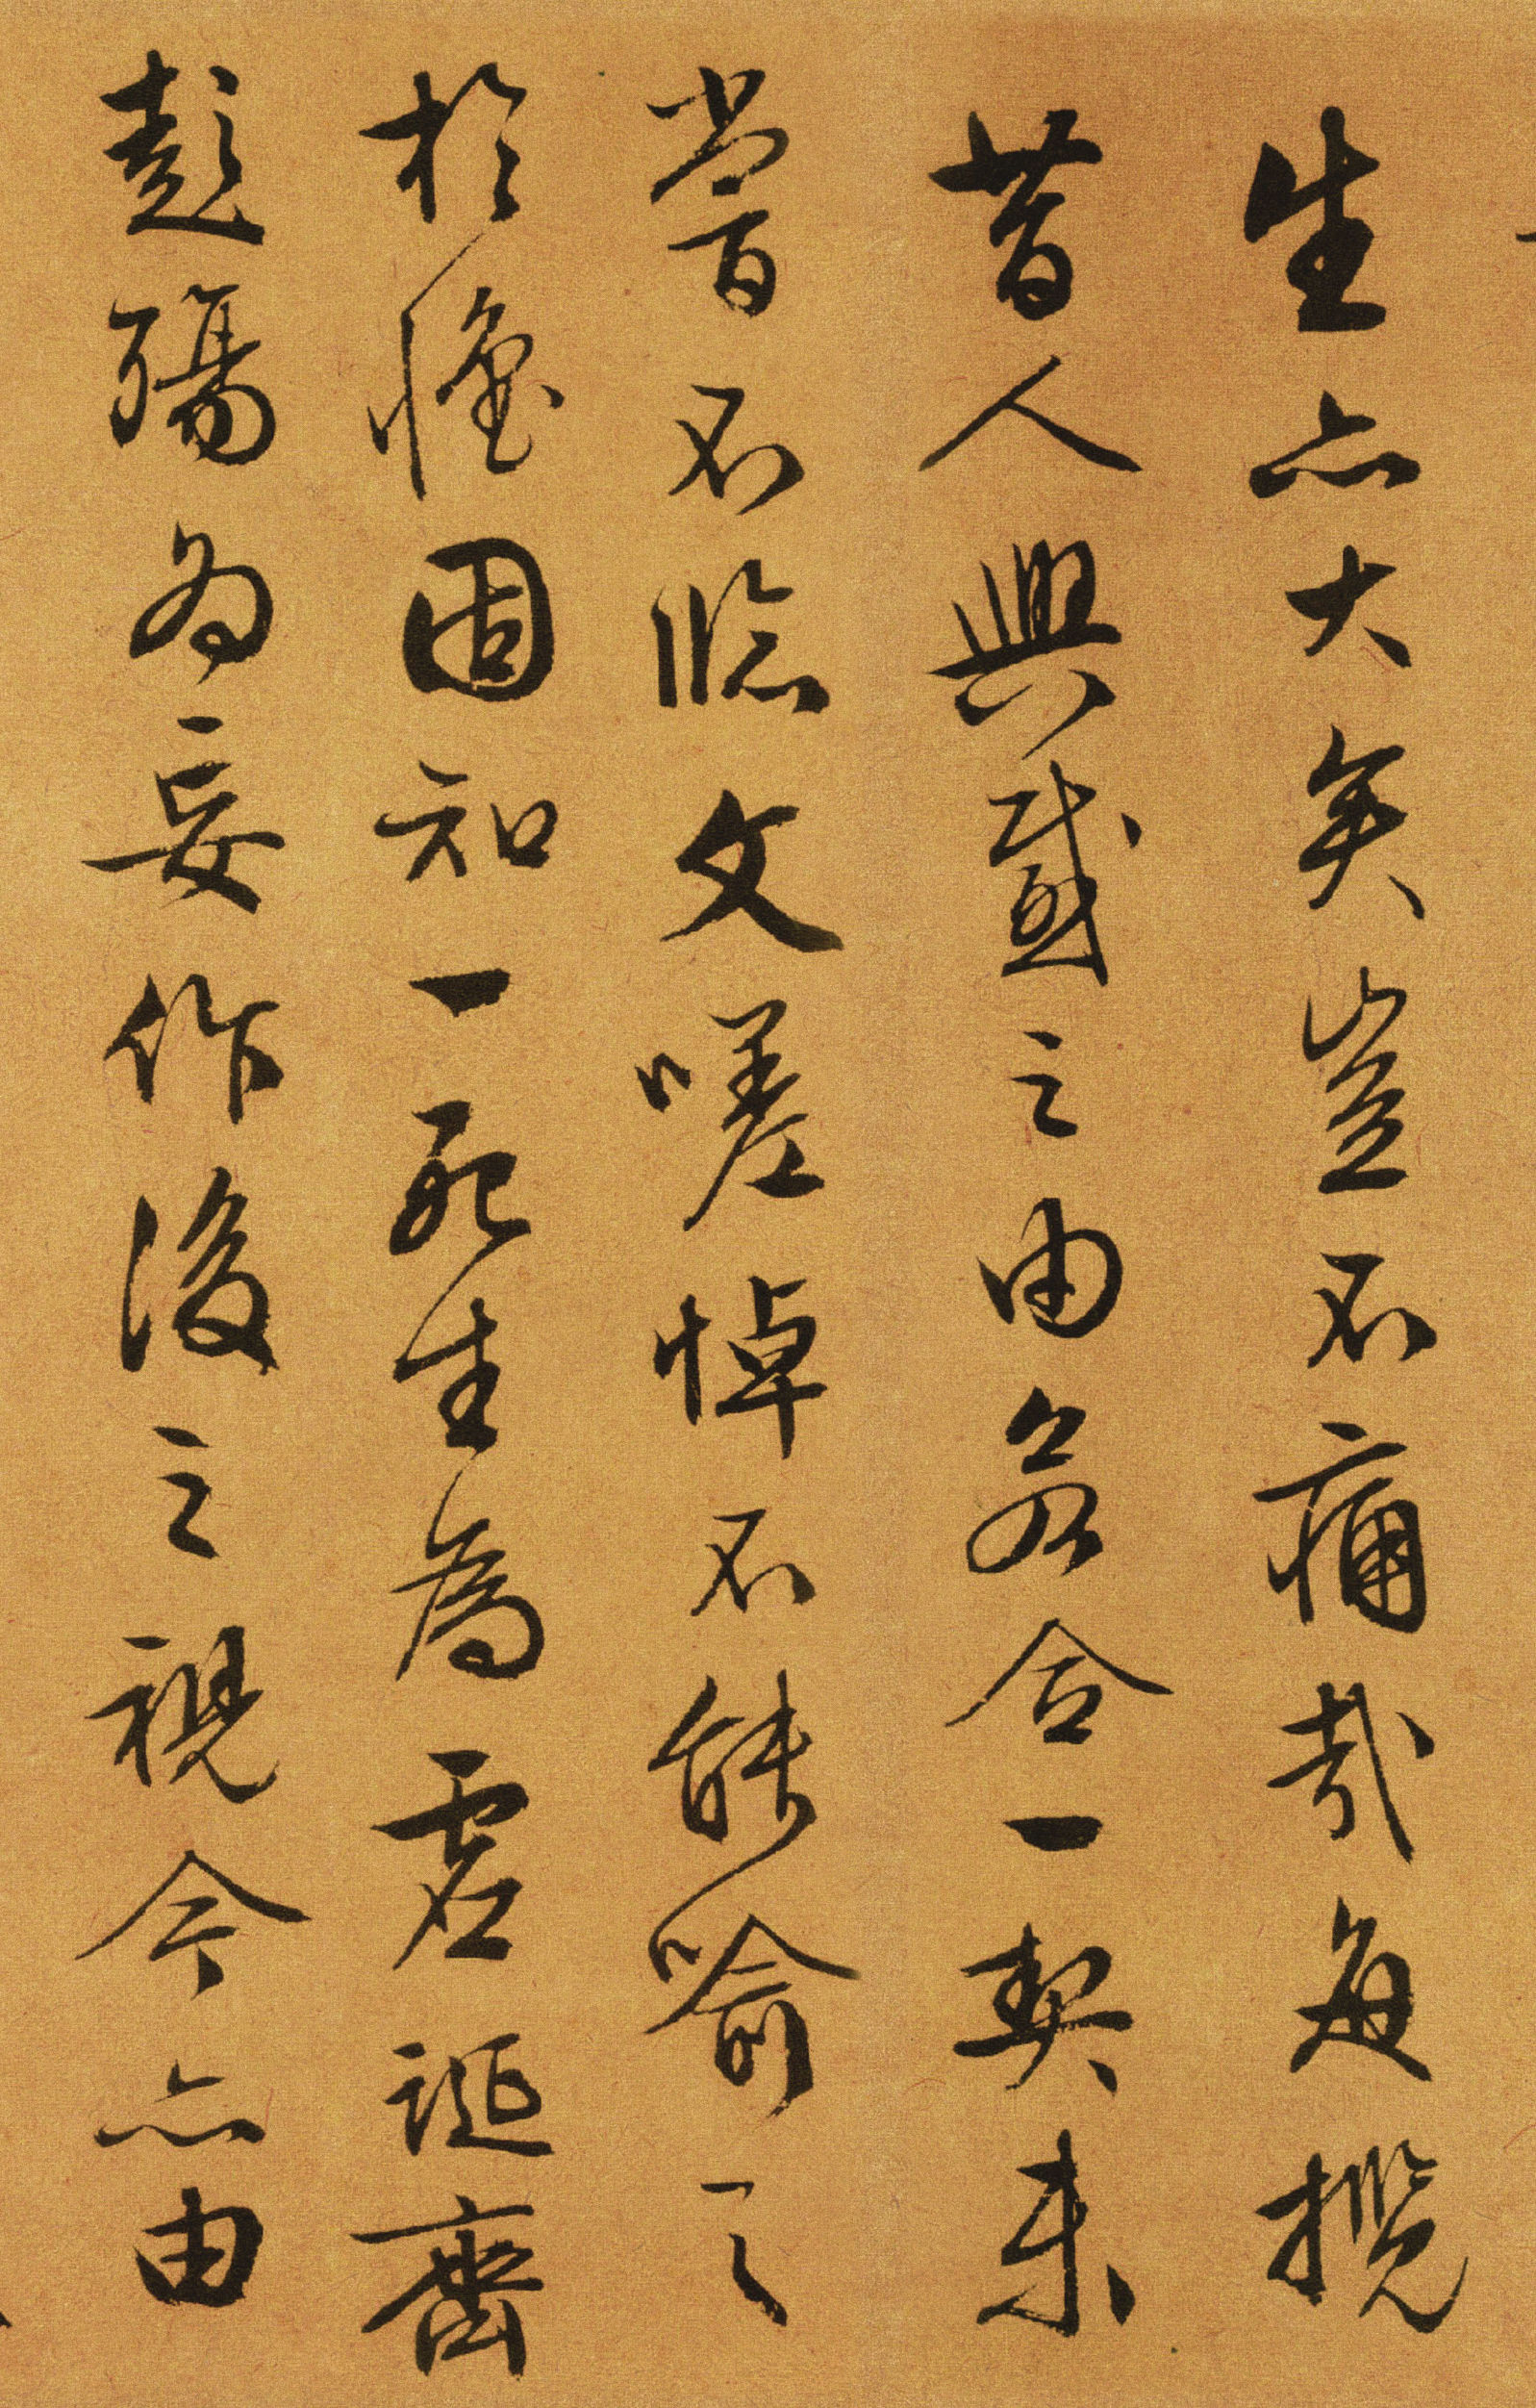 生亦大矣豈不痛哉每攬
昔人興感之由若合一契未
甞不臨文嗟悼不能喻之
於懷固知一死生為虛誕齊
彭殤為妄作後之視今亦由